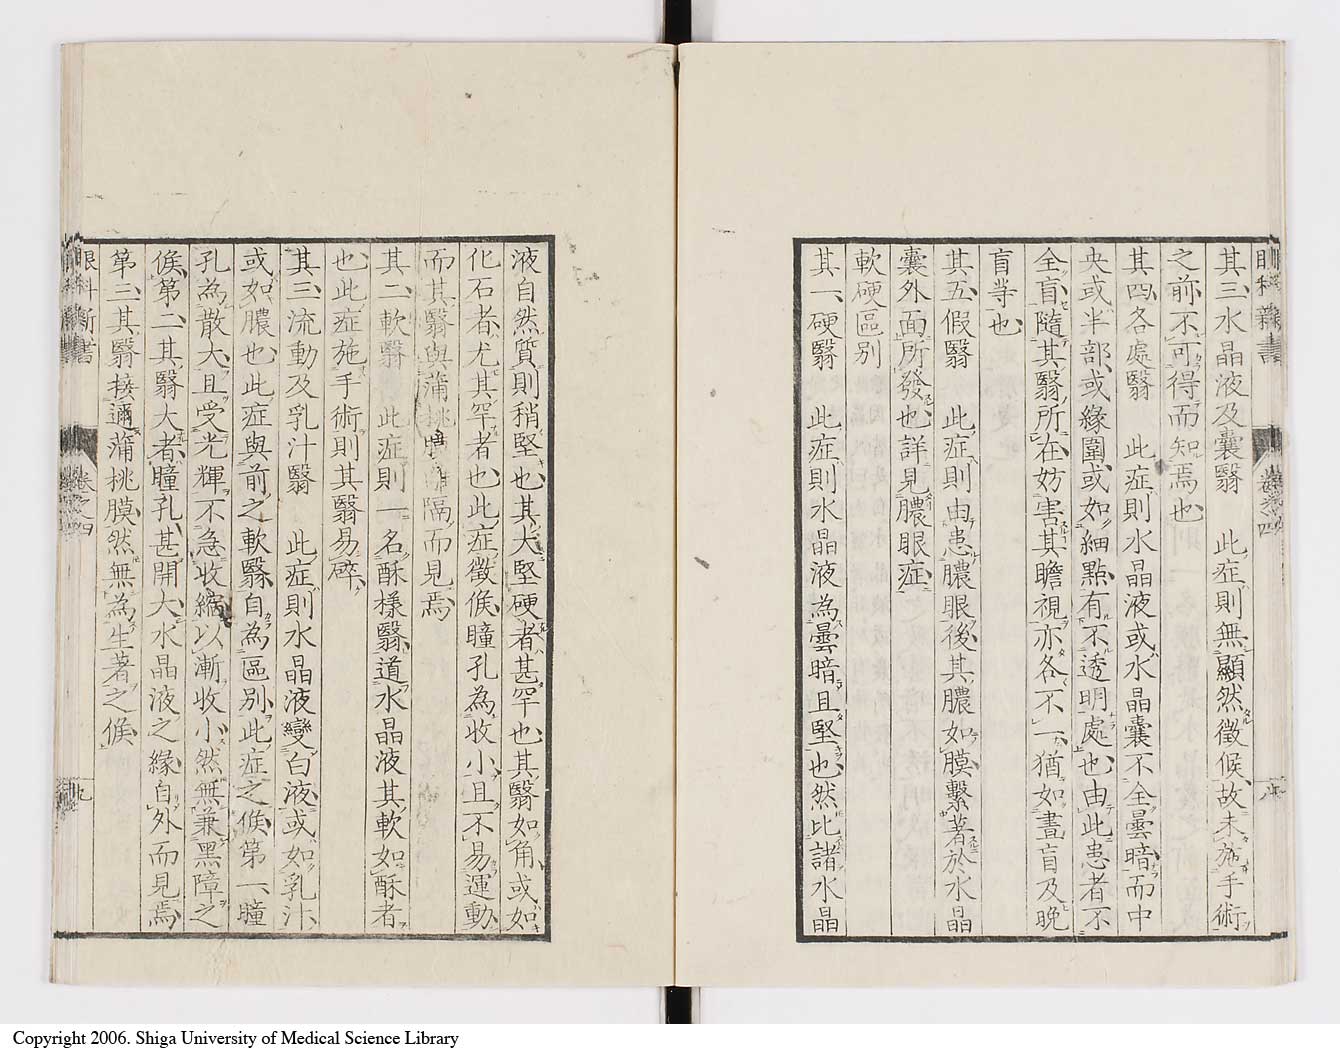 其三水晶液及囊翳　此症則無顯然徵候故未施手術
之前不可得而知焉也
其四各處翳　此症則水晶液或水晶囊不全曇暗而中
央或半部或緣圍或如細點有不透明處也由此患者不
全盲隨其翳所在妨害其瞻視亦各不一猶如晝盲及晚
盲等也
其五假翳　此症則由患膿眼後其膿如膜繫著於水晶
囊外面所發也詳見膿眼症
軟硬區別
其一硬翳　此症則水晶液為曇暗且堅也然比諸水晶
液自然質則稍堅也其大堅硬者甚罕也其翳如角或如
化石者尤其罕者也此症徵候瞳孔為收小且不易運動
而其翳與蒲桃膜隔而見焉
其二軟翳　此症則一名酥樣翳道水晶液其軟如酥者
也此症施手術則其翳易碎
其三流動及乳汁翳　此症則水晶液變白液或如乳汁
或如膿也此症與前之軟翳自為區別此症之候第一瞳
孔為散大且受光輝不急收縮以漸收小然無兼黑障之
候第二其翳大者瞳孔甚開大水晶液之緣自外而見焉
第三其翳接邇蒲桃膜然無為生著之候
眼科新書
卷之四
九